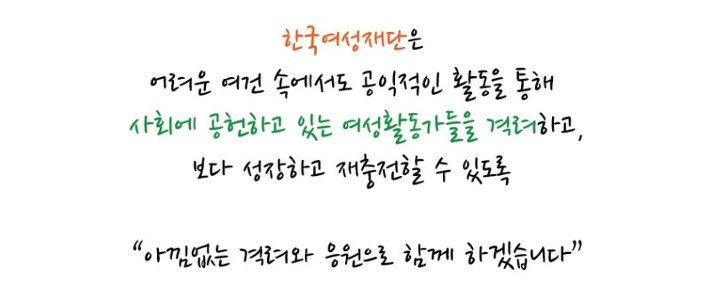 한국여성재단은
어려운 여건 속에서도 공익적인 활동을 통해
사회에 공헌하고 있는 여성활동가들을 격려하고,
보다 성장하고 재충전할 수 있도록
“아낌없는 격려와 응원으로 함께 하겠습니다”